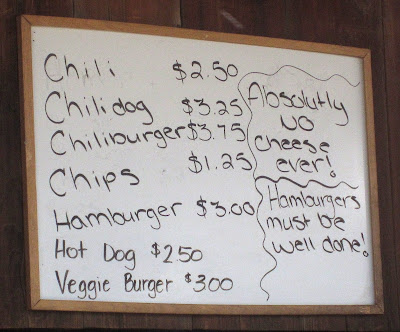 Chili $2.50
Chilidog $3.25
Chiliburger $3.75
Chips $1.25
Hamburger $3.00
Hot Dog $2.50
Veggie Burger $3.00
Absolutly
NO
cheese
ever!
Hamburgers
must be
well done!